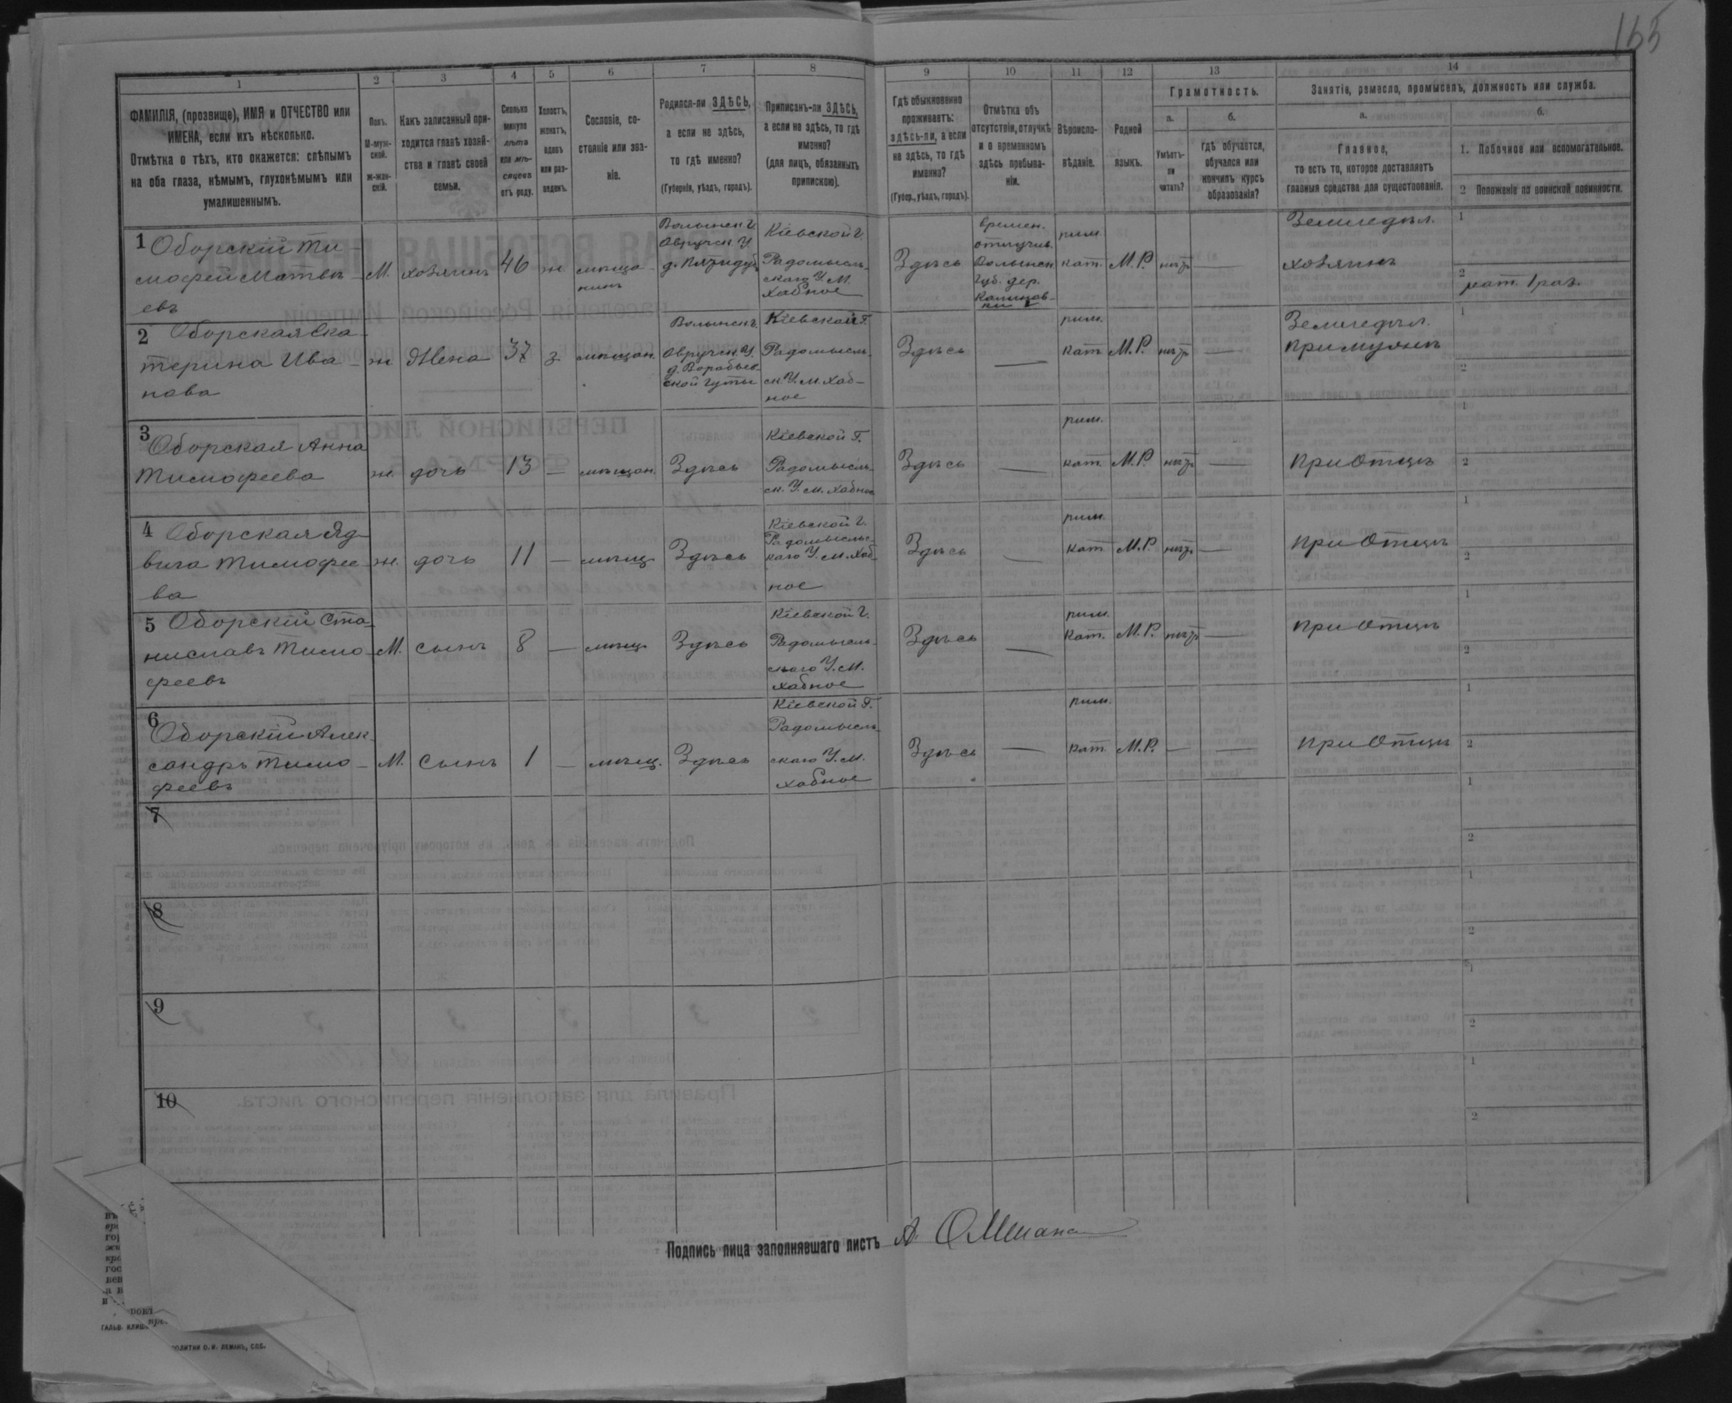 165
1
2
3
4
5
6
7
8
9
10
11
12
13
14
ФАМИЛІЯ, (прозвище), ИМЯ и ОТЧЕСТВО или
ИМЕНА, если ихъ нѣсколько.
Отмѣтка о тѣхъ, кто окажется: слѣпымъ
на оба глаза, нѣмымъ, глухонѣмымъ или
умалишеннымъ.
Полъ.
М-муж-
ской.
Ж-жен-
скій.
Какъ записанный при-
ходится главѣ хозяй-
ства и главѣ своей
семьи.
Сколько
минуло
лѣтъ
или мѣ-
сяцевъ
отъ роду.
Холостъ,
женатъ,
вдовъ
или раз-
веденъ.
Сословіе, со-
стояніе или зва-
ніе.
Родился-ли ЗДѢСЬ,
а если не здѣсь,
то гдѣ именно?
(Губернія, уѣздъ, городъ).
Приписанъ-ли ЗДѢСЬ,
а если не здѣсь, то гдѣ
именно?
(для лицъ, обязанныхъ
припискою).
Гдѣ обыкновенно
проживаетъ:
здѣсь-ли, а если
не здѣсь, то гдѣ
именно?
(Губер., уѣздъ, городъ).
Отмѣтка объ
отсутствіи, отлучкѣ
и о временномъ
здѣсь пребыва-
ніи.
Вѣроиспо-
вѣданіе.
Родной
языкъ.
Грамотность.
а.
Умѣетъ-
ли
читать?
б.
гдѣ обучается,
обучался или
кончилъ курсъ
образованія?
Занятіе, ремесло, промыселъ, должность или служба.
а.
Главное,
то есть то, которое доставляетъ
главныя средства для существованія.
б.
1. Побочное или вспомогательное.
2 Положеніе по воинской повинности.
1 Оборскій Ти-
мофей Матвѣ-
евъ
М. хозяинъ 46 ж мѣща-
нинъ
Волынск. г.
Овручск. У.
Кіевской г.
Радомысль-
скаго У. М.
Хабное
Здѣсь
времен.
отлучив.
Волынск
губ. дер.
рим.
кат. М.Р. нѣтъ —
Земледѣл.
хозяинъ
1
2
2 Оборская Ека-
терина Ива-
нова
ж Жена 37 з. мѣщан.
Волынск г.
Овручск. У.
Кіевской г.
Радомысль-
ск. У. м. Хаб-
ное
Здѣсь —
рим.
кат. М.Р. нѣтъ —
Земледѣл.
При мужѣ
1
2
3 Оборская Анна
Тимофеева
ж. дочь 13 — мѣщан. Здѣсь
Кіевской г.
Радомысль-
ск. У. м. Хабное
Здѣсь —
рим.
кат М.Р. нѣтъ —
При Отцѣ
1
2
4 Оборская Яд-
вига Тимофее-
ва
ж. дочь 11 — мѣщ Здѣсь
Кіевской г.
Радомысльс-
каго У м. Хаб
ное
Здѣсь —
рим.
кат М.Р. нѣтъ —
При Отцѣ
1
2
5 Оборскій Ста-
ниславъ Тимо-
феевъ
М. сынъ 8 — мѣщ Здѣсь
Кіевской г.
Радомысль-
скаго У. м.
Хабное
Здѣсь —
рим.
кат. М.Р. нѣтъ —
При Отцѣ
1
2
6 Оборскій Алек-
сандръ Тимо-
феевъ
М. Сынъ 1 — мѣщ. Здѣсь
Кіевской г.
Радомысль-
скаго У. м.
Хабное
Здѣсь —
рим.
кат М.Р. — —
При Отцѣ
1
2
7
1
2
8
1
2
9
1
2
10
1
2
Подпись лица заполнявшаго листъ